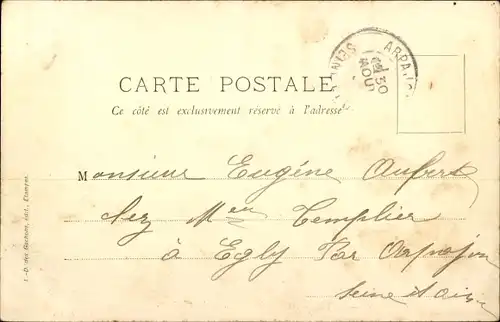 CARTE POSTALE
Ce côté est exclusivement réservé à l'adresse
ARPAJON
30
AOUT
Monsieur Eugène Aubert
chez Mer Templier
à Egly Par Arpajon
Seine et Oise